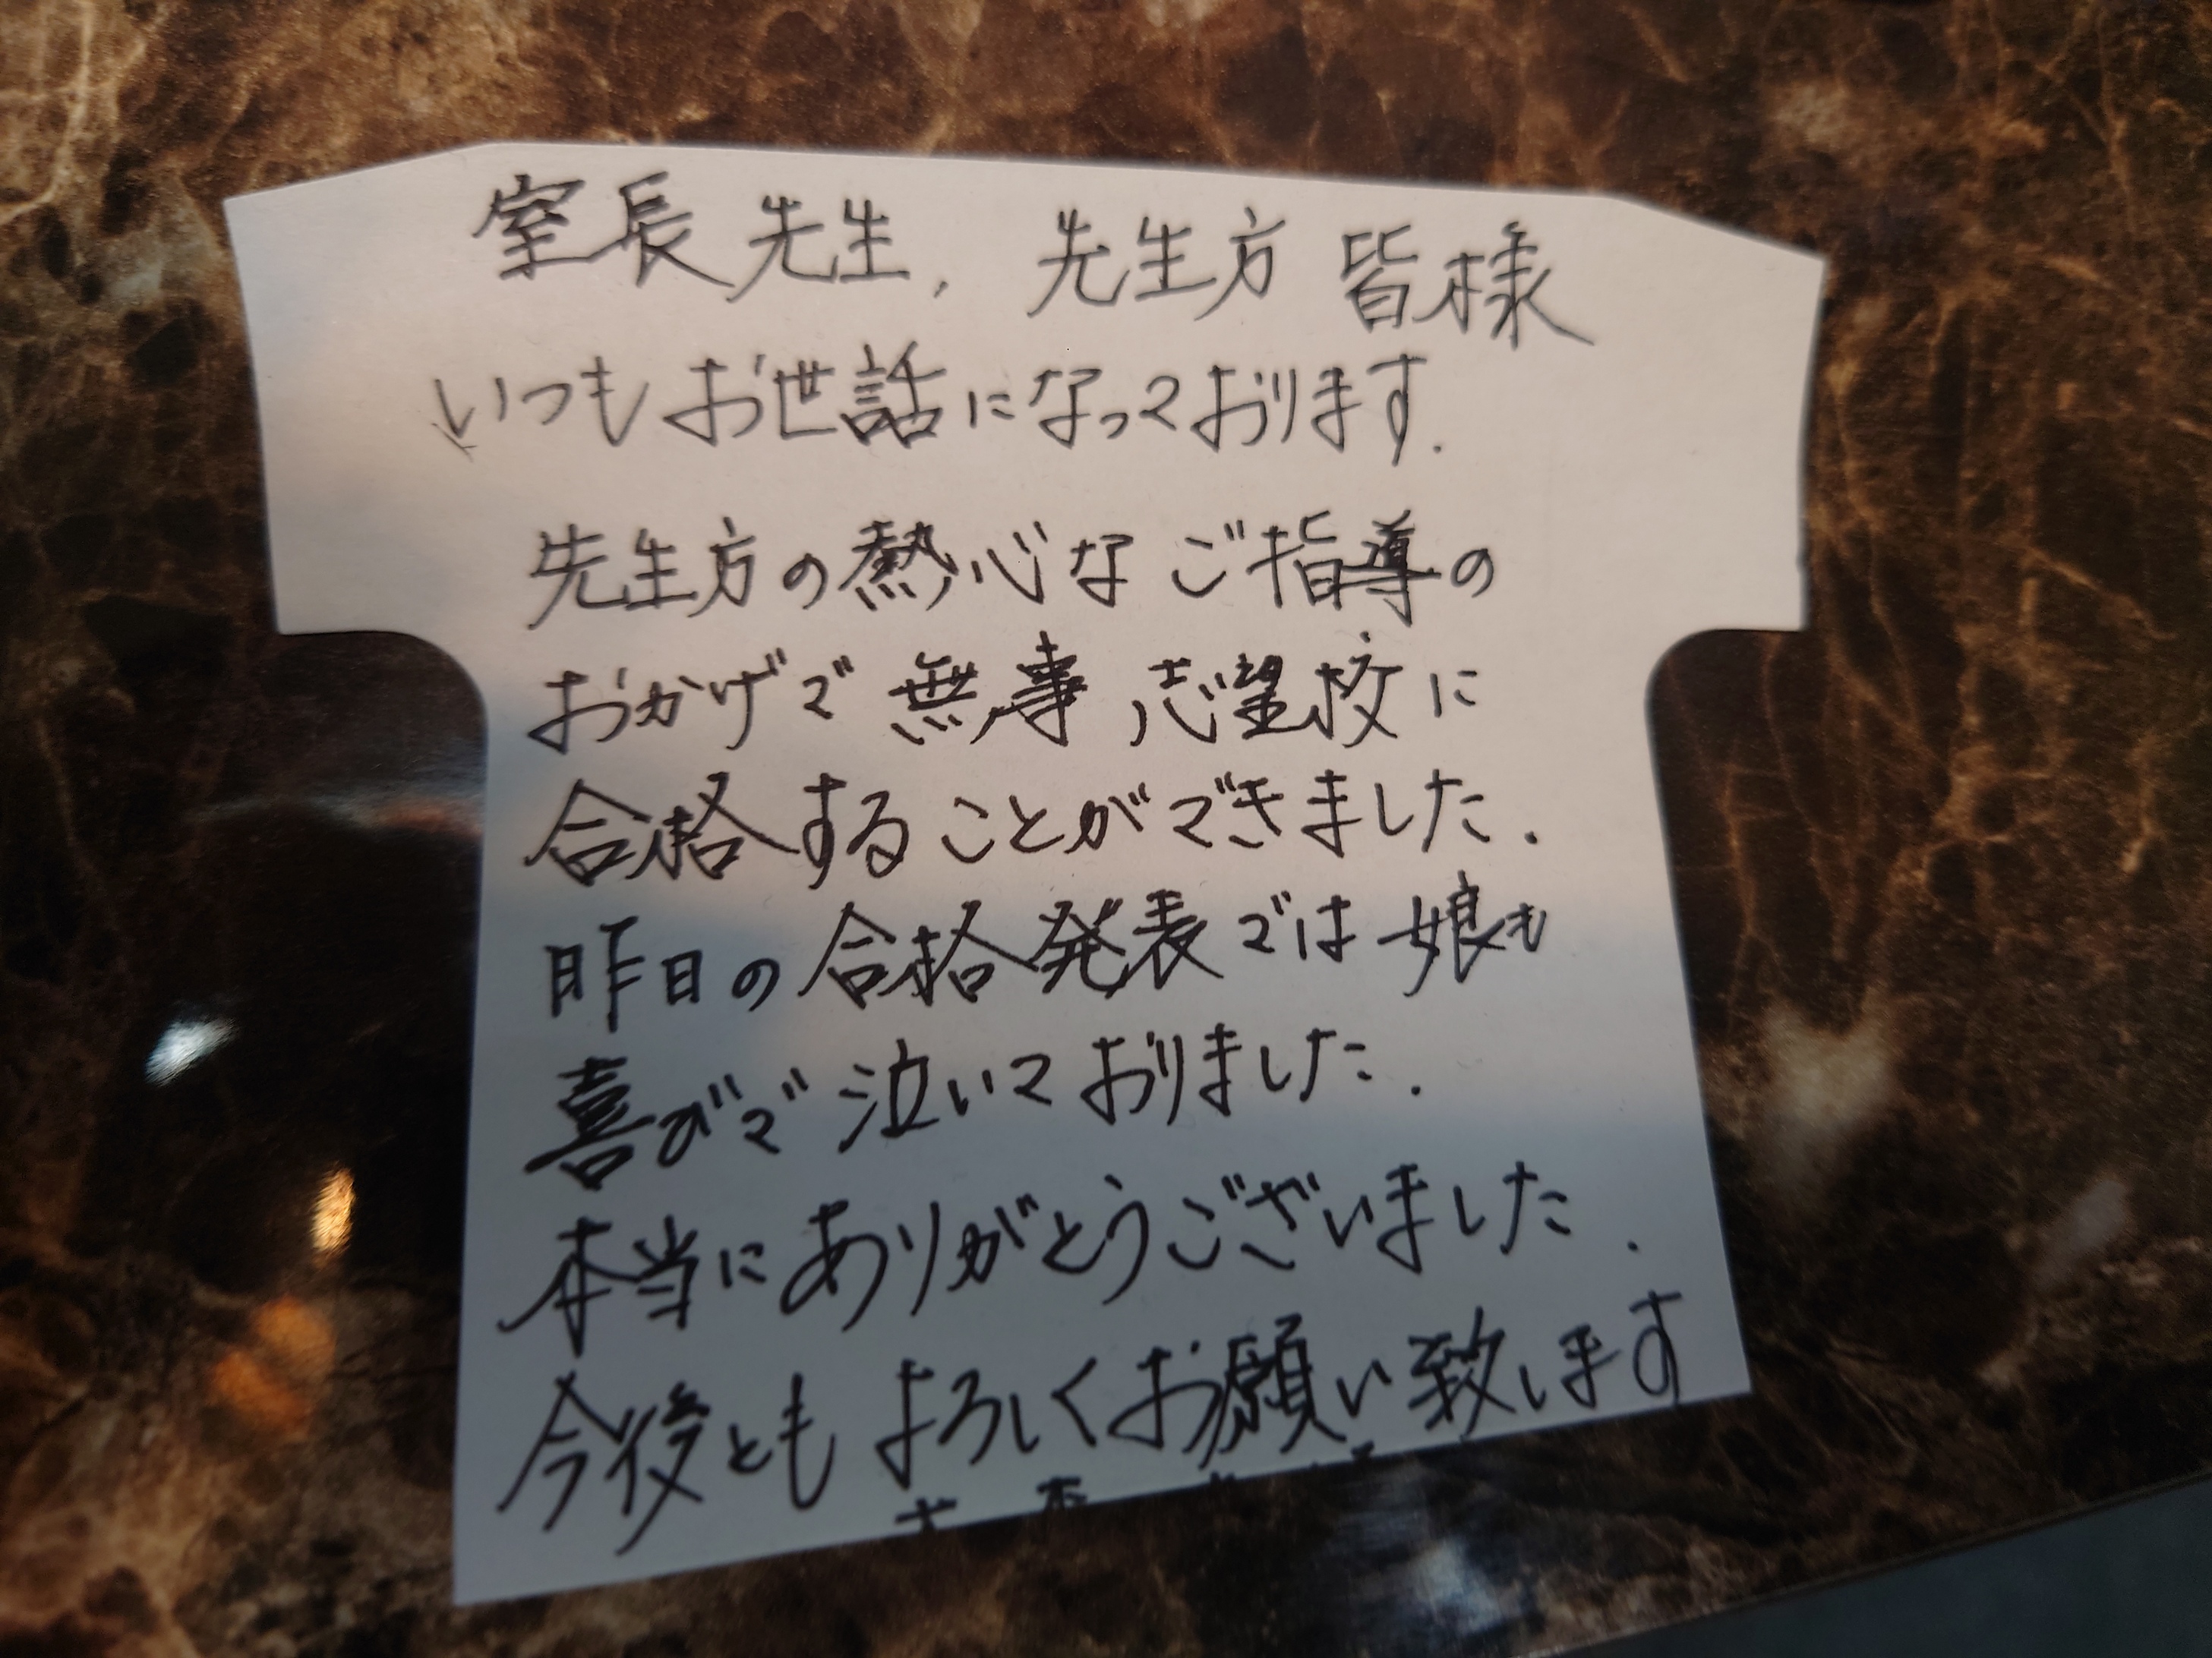 室長先生, 先生方 皆様
いつもお世話になっております.
先生方の熱心なご指導の
おかげで無事 志望校に
合格することができました.
昨日の合格発表では娘も
喜んで泣いておりました.
本当にありがとうございました.
今後ともよろしくお願い致します